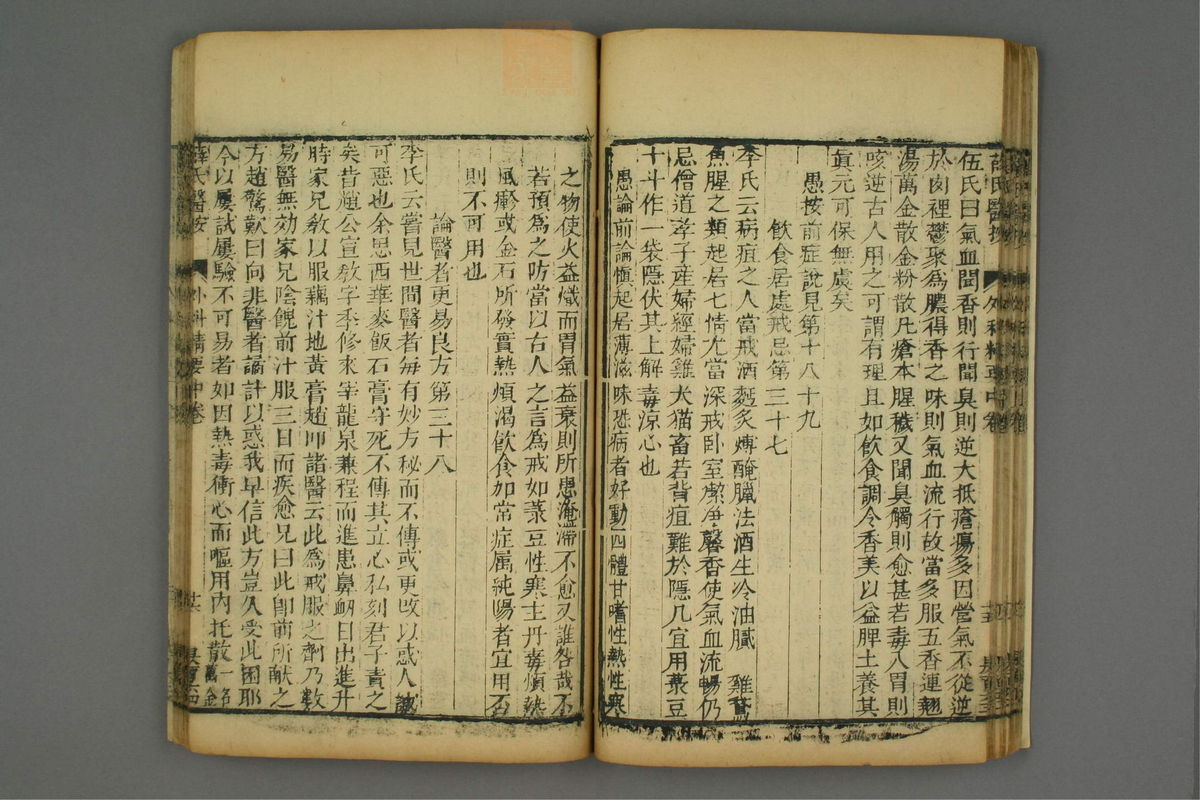 伍氏曰氣血聞香則行聞臭則逆大抵瘡瘍多因營氣不從逆
於肉裡鬱聚爲膿得香之味則氣血流行故當多服五香連翹
湯萬金散金粉散凡瘡本腥穢又聞臭觸則愈甚若毒入胃則
咳逆古人用之可謂有理且如飲食調令香美以益脾土養其
眞元可保無虞矣
愚按前症說見第十八十九
飲食居處戒忌第三十七
李氏云病疽之人當戒酒麪炙煿醃臘法酒生冷油膩 雞鵞
魚腥之類起居七情尤當深戒卧室潔淨馨香使氣血流暢仍
忌僧道孝子産婦經婦雞犬猫畜若背疽難於隱几宜用菉豆
十斗作一袋隱伏其上解毒凉心也
愚論前論愼起居薄滋味恐病者好動四體甘嗜性熱性寒
之物使火益熾而胃氣益衰則所患滯不愈又誰咎哉不
若預爲之防當以古人之言爲戒如菉豆性寒主丹毒煩熱
風癬或金石所發實熱煩渴飲食如常症属純陽者宜用否
則不可用也
論醫者更易良方第三十八
李氏云嘗見世間醫者每有妙方秘而不傳或更改以惑人誠
可惡也余思西華麥飯石膏守死不傳其立心私刻君子責之
矣昔趙公宣敎字季修來宰龍泉兼程而進患鼻衂日出進升
時家兄敎以服藕汁地黃膏趙叩諸醫云此爲戒服之劑乃數
易醫無効家兄陰餽前汁服三日而疾愈兄曰此卽前所献之
方趙驚歎曰向非醫者譎計以惑我早信此方豈久受此困耶
今以屢試屢驗不可易者如因熱毒衝心而嘔用內托散萬金一名
薛氏醫按 外科精要中卷